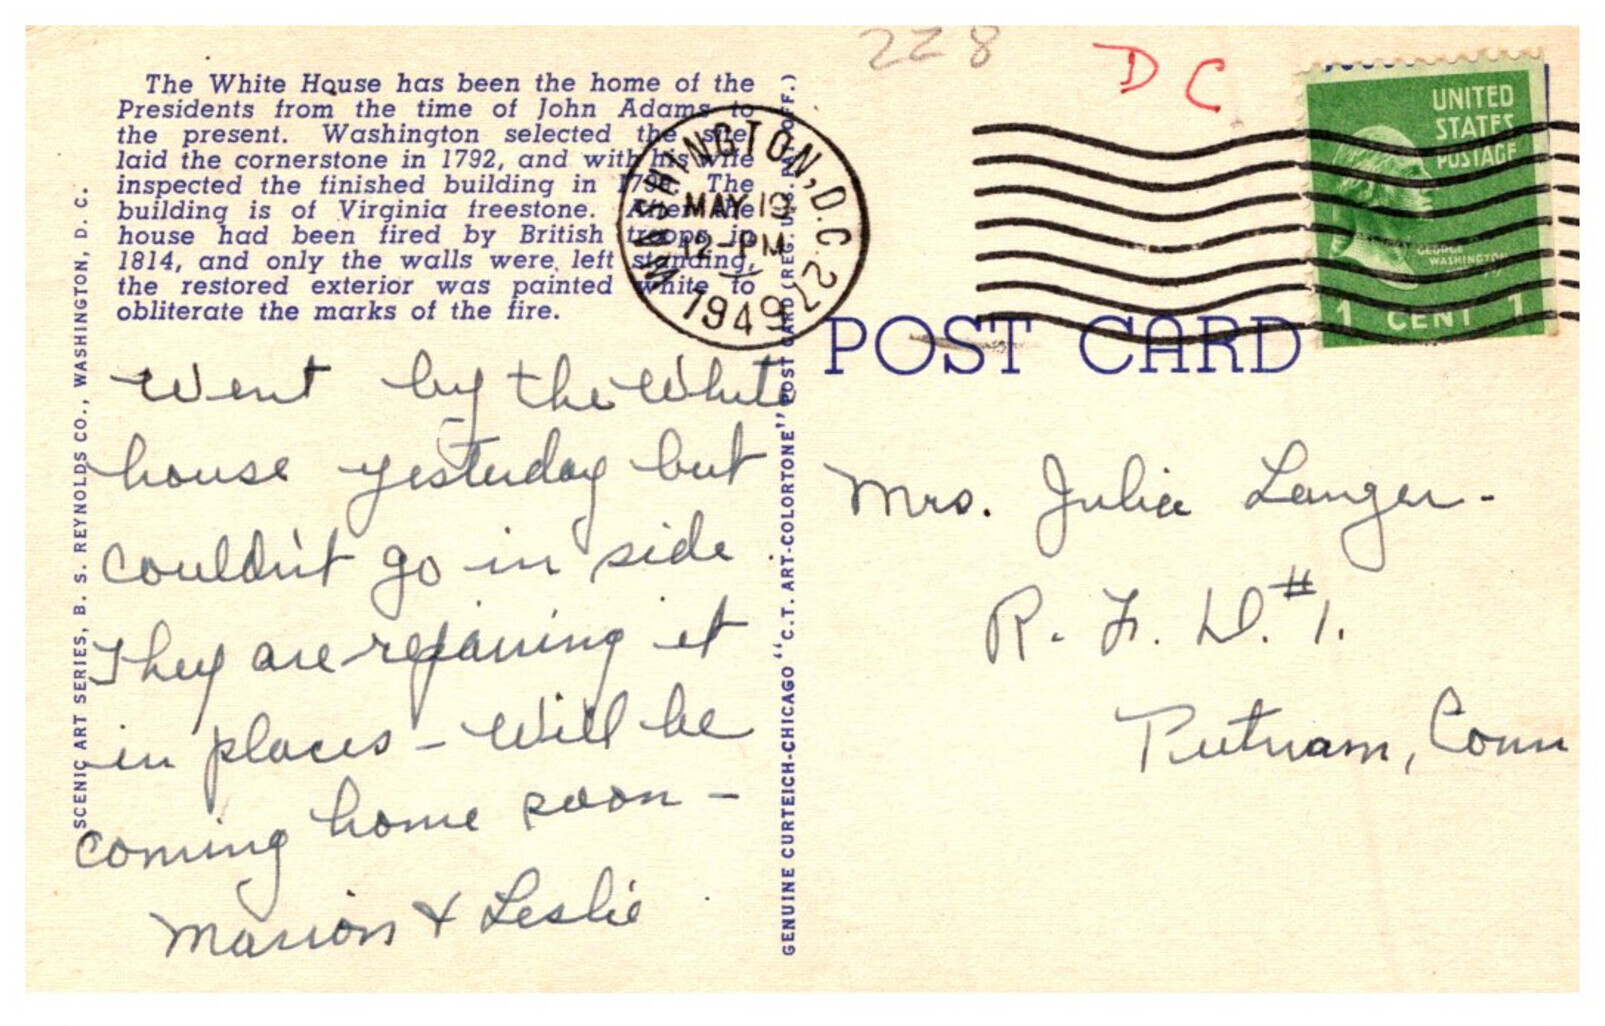 228
D C
The White House has been the home of the
Presidents from the time of John Adams to
the present. Washington selected the site,
laid the cornerstone in 1792, and with his wife
inspected the finished building in The
building is of Virginia freestone. After the
house had been fired by British troops in
1814, and only the walls were left standing,
the restored exterior was painted white to
obliterate the marks of the fire.
WASHINGTON, D.C. 22
MAY 19
12-PM
1949
UNITED
STATES
POSTAGE
GEORGE
WASHINGTON
1 CENT 1
POST CARD
SCENIC ART SERIES, B. S. REYNOLDS CO., WASHINGTON, D. C.
Went by the White
house yesterday but
couldn't go in side.
They are repairing it
in places – Will be
coming home soon –
Marion & Leslie
GENUINE CURTEICH-CHICAGO "C.T. ART-COLORTONE" POST CARD (REG. U.S. PAT. OFF.)
Mrs. Julia Langer-
R. F. D. #1.
Putnam, Conn